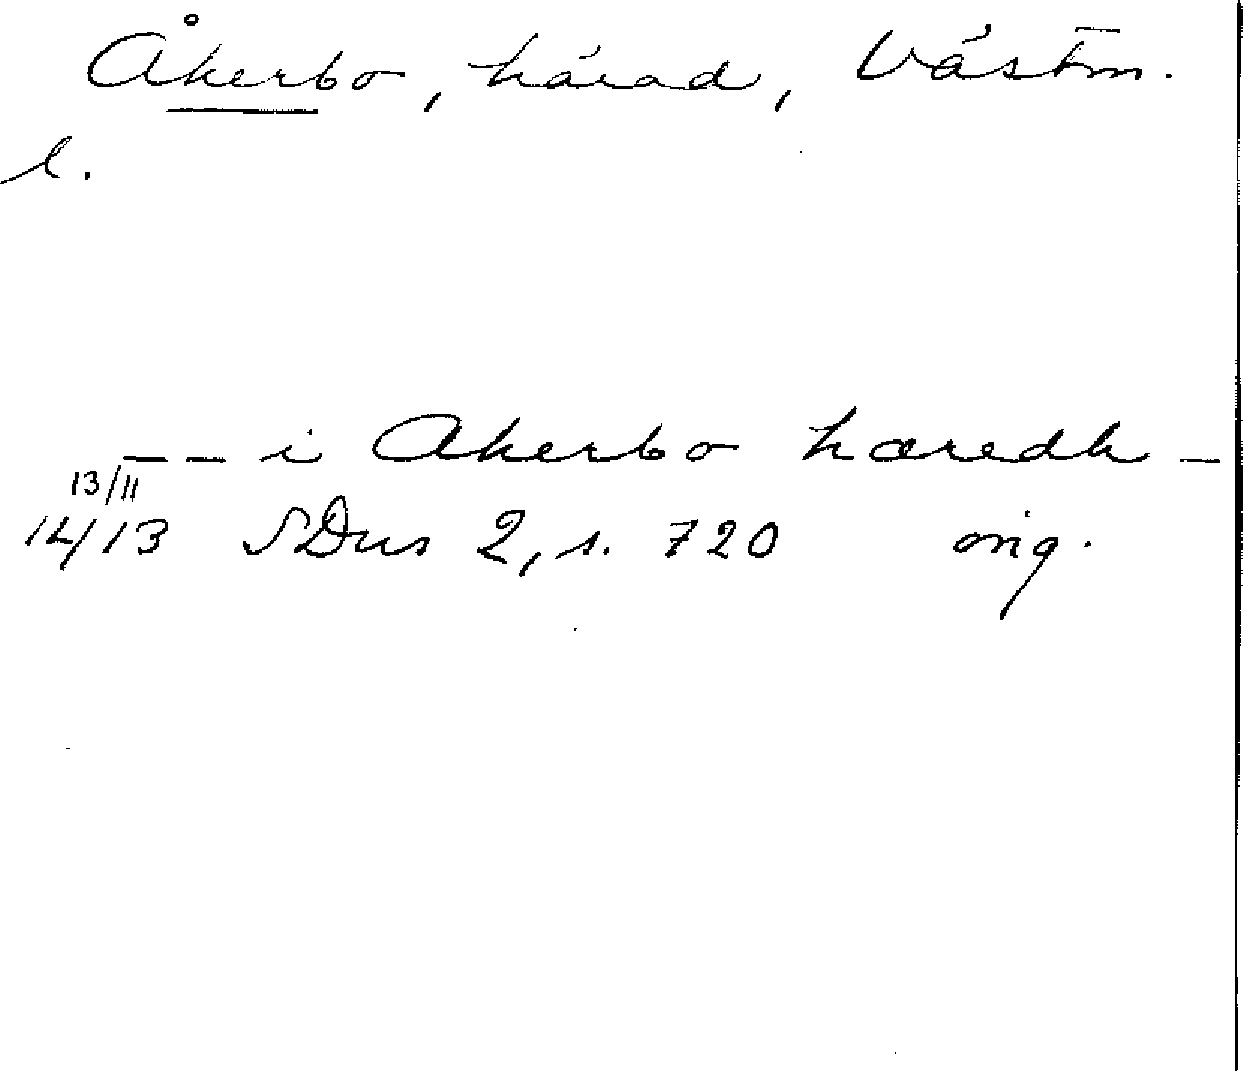 Åkerbo, härad, Västm.
l.
— — i Akerbo hæredh –
13/11
1413 SDns 2, s. 720 orig.